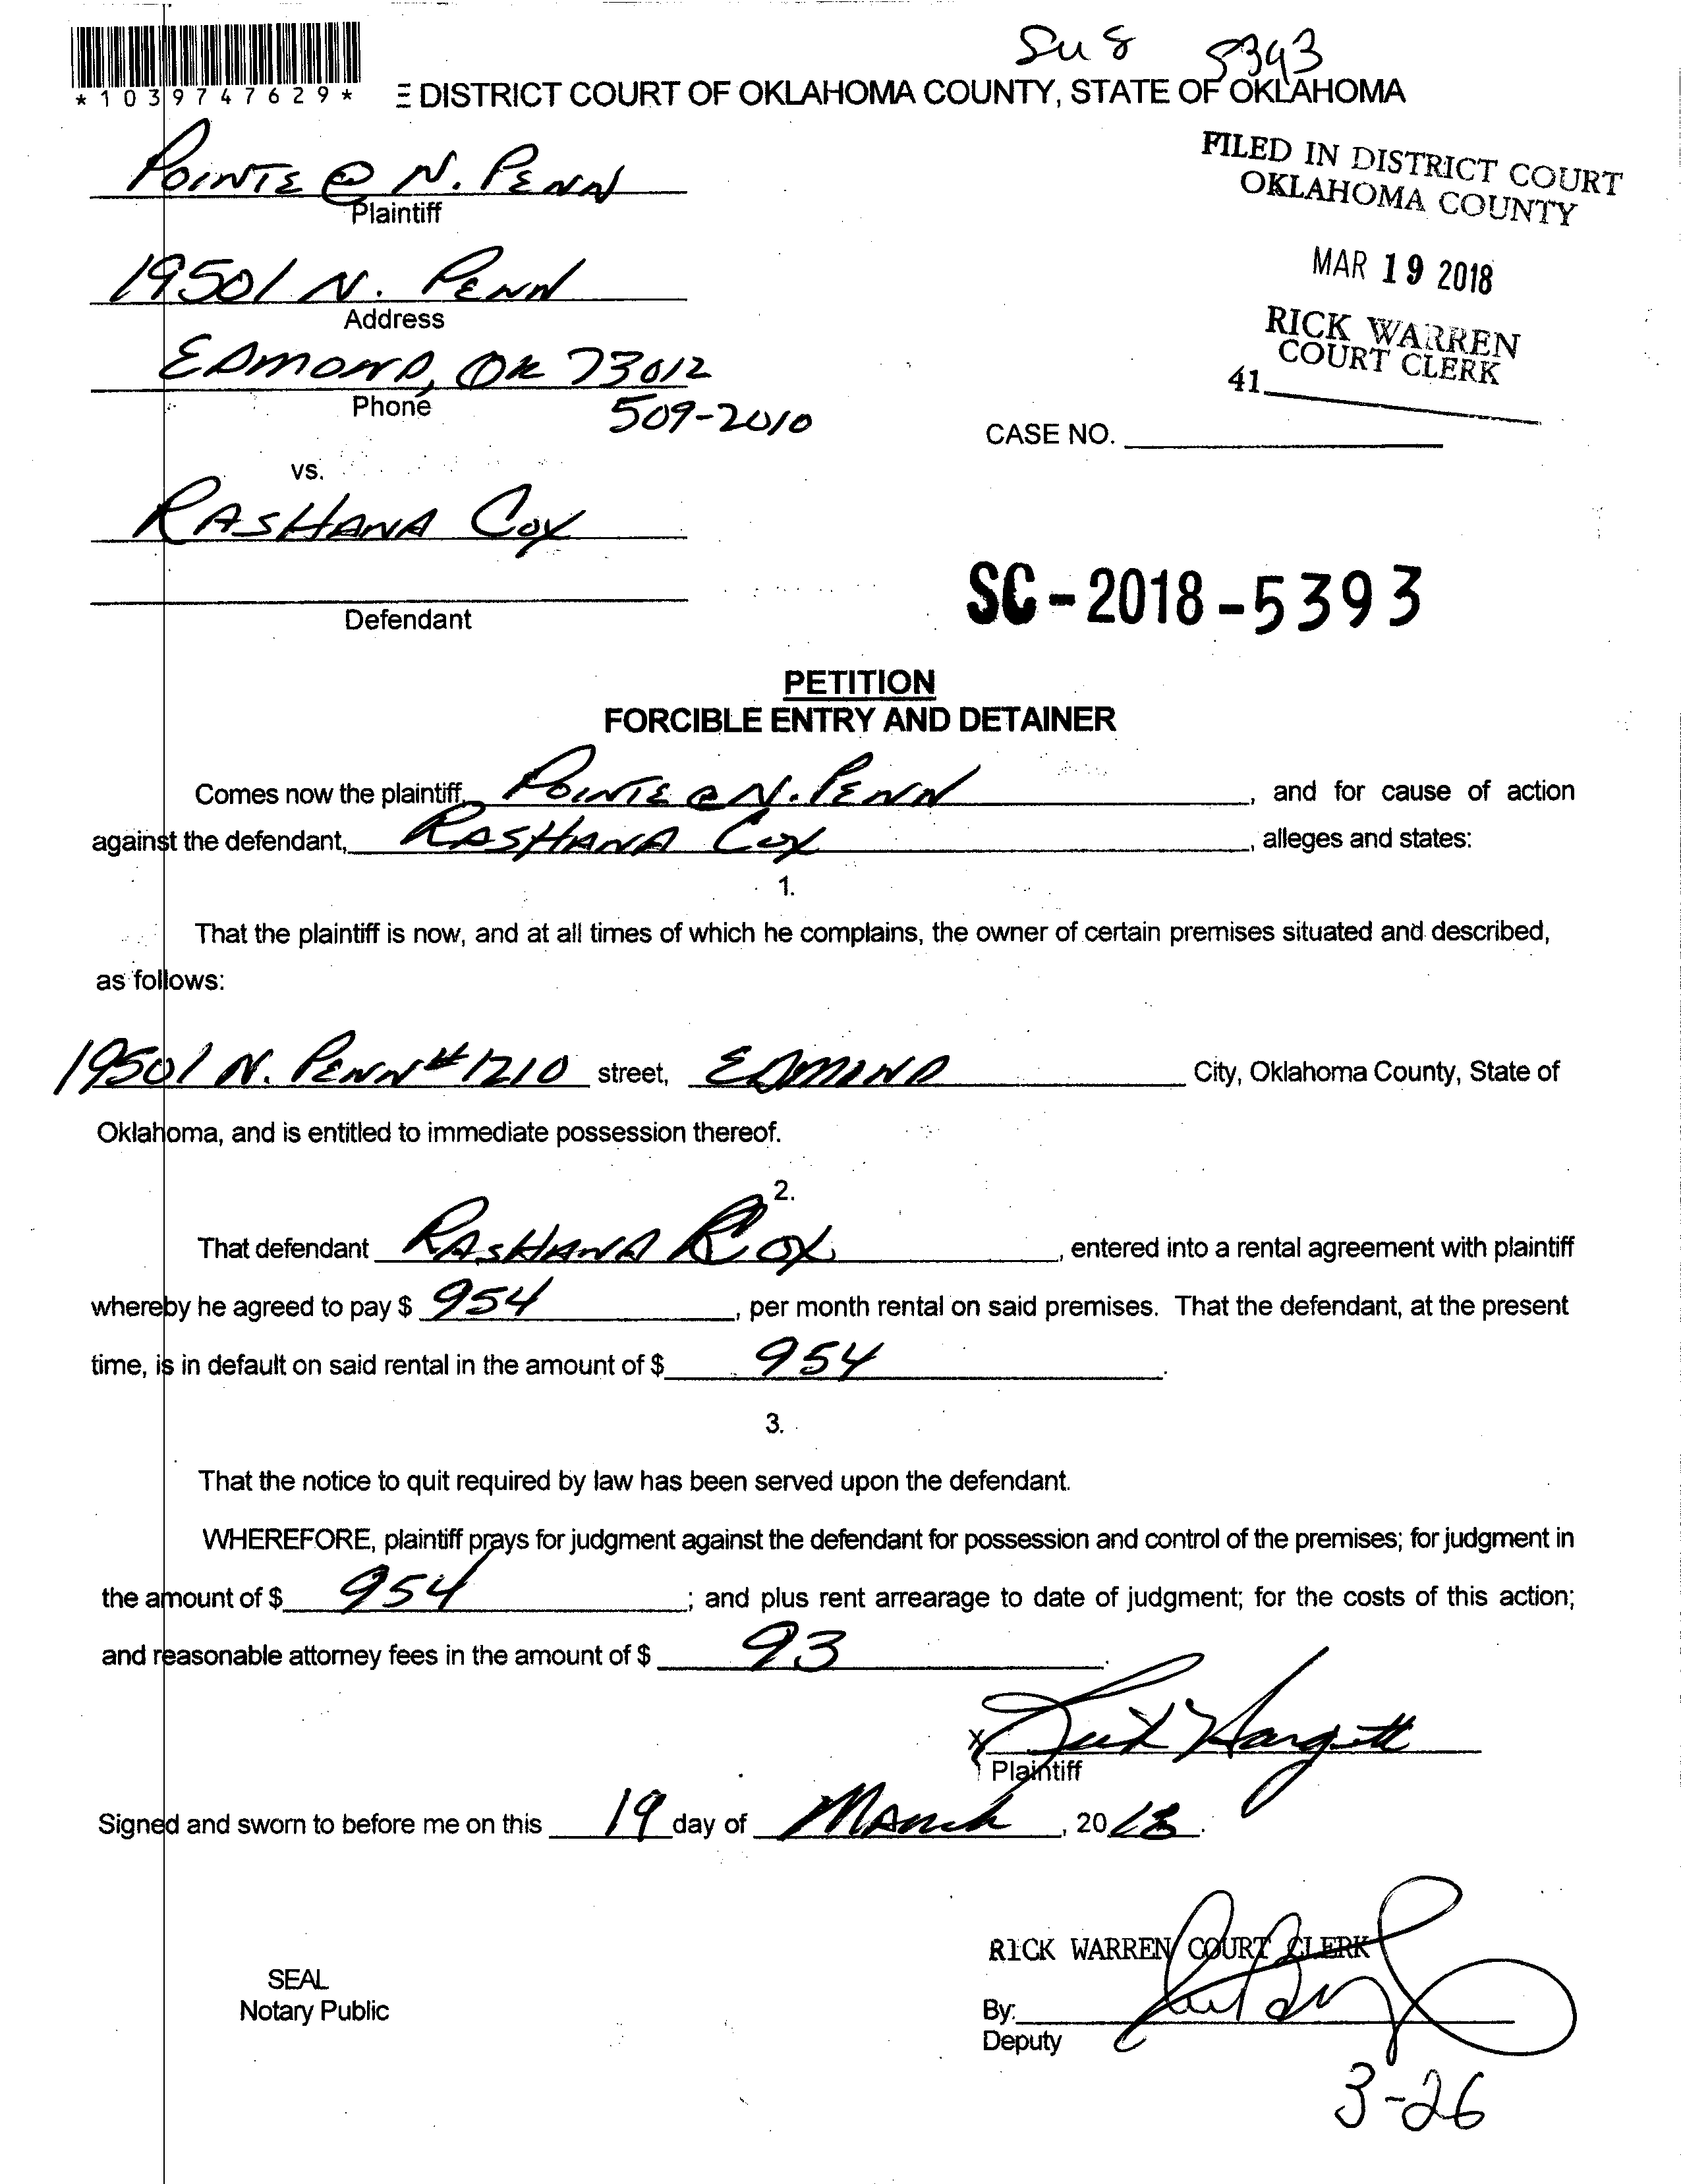 Su 8 5393
*1039747629*
E DISTRICT COURT OF OKLAHOMA COUNTY, STATE OF OKLAHOMA
FILED IN DISTRICT COURT
OKLAHOMA COUNTY
MAR 19 2018
RICK WARREN
COURT CLERK
41
POINTE @ N. PENN
Plaintiff
19501 N. PENN
Address
EDMOND, OK 73012
Phone
509-2010
CASE NO.
vs.
RASHANA COX
Defendant
SC-2018-5393
PETITION
FORCIBLE ENTRY AND DETAINER
Comes now the plaintiff, POINTE @ N. PENN, and for cause of action
against the defendant, RASHANA COX, alleges and states:
1.
That the plaintiff is now, and at all times of which he complains, the owner of certain premises situated and described,
as follows:
19501 N. PENN #1210 street, EDMIND City, Oklahoma County, State of
Oklahoma, and is entitled to immediate possession thereof.
2.
That defendant RASHANA COX, entered into a rental agreement with plaintiff
whereby he agreed to pay $ 954, per month rental on said premises. That the defendant, at the present
time, is in default on said rental in the amount of $ 954.
3.
That the notice to quit required by law has been served upon the defendant.
WHEREFORE, plaintiff prays for judgment against the defendant for possession and control of the premises; for judgment in
the amount of $ 954; and plus rent arrearage to date of judgment; for the costs of this action;
and reasonable attorney fees in the amount of $ 93.
X Hargett
Plaintiff
Signed and sworn to before me on this 19 day of March, 2018.
RICK WARREN COURT CLERK
SEAL
Notary Public
By:
Deputy
3-26